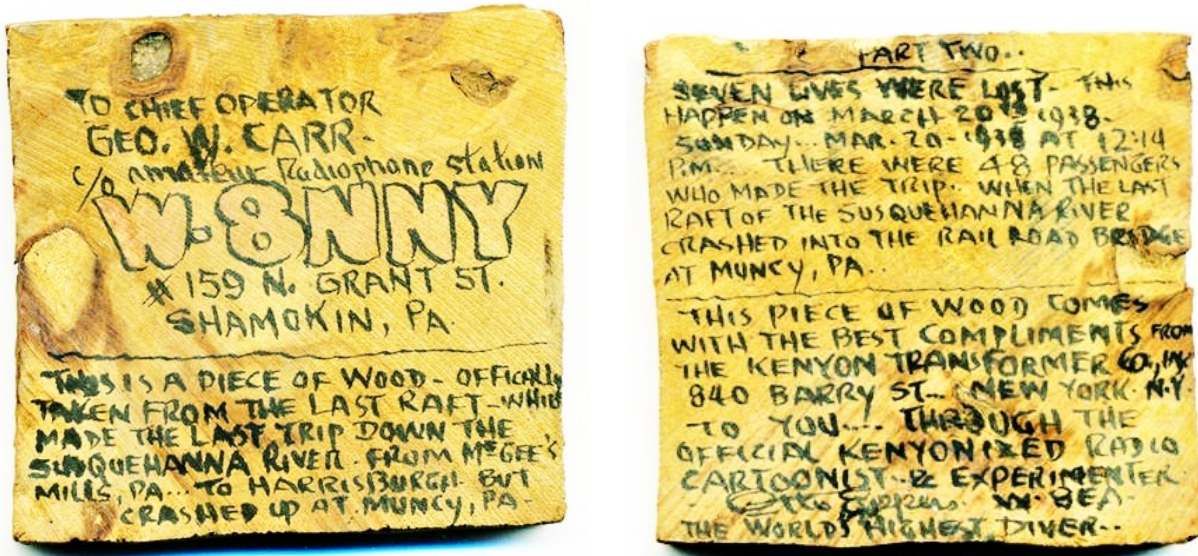 TO CHIEF OPERATOR
GEO. W. CARR-
c/o amateur Radiophone station
W.8NNY
# 159 N. GRANT ST.
SHAMOKIN, PA.
THIS IS A PIECE OF WOOD- OFFICALLY
TAKEN FROM THE LAST RAFT-WHICH
MADE THE LAST TRIP DOWN THE
SUSQUEHANNA RIVER. FROM McGEE'S
MILLS, PA... TO HARRISBURGH. BUT
CRASHED UP AT MUNCY, PA-
PART TWO..
SEVEN LIVES WERE LOST- THIS
HAPPEN ON MARCH 20TH 1938-
SUNDAY... MAR. 20-1938 AT 12:14
P.M... THERE WERE 48 PASSENGERS
WHO MADE THE TRIP.. WHEN THE LAST
RAFT OF THE SUSQUEHANNA RIVER
CRASHED INTO THE RAIL ROAD BRIDGE
AT MUNCY, PA..
THIS PIECE OF WOOD COMES
WITH THE BEST COMPLIMENTS FROM
THE KENYON TRANSFORMER CO., INC
840 BARRY ST... NEW YORK. N.Y.
TO YOU.... THROUGH THE
OFFICIAL KENYONIZED RADIO
CARTOONIST & EXPERIMENTER-
Otto Eppers W2EA-
THE WORLDS HIGHEST DIVER--